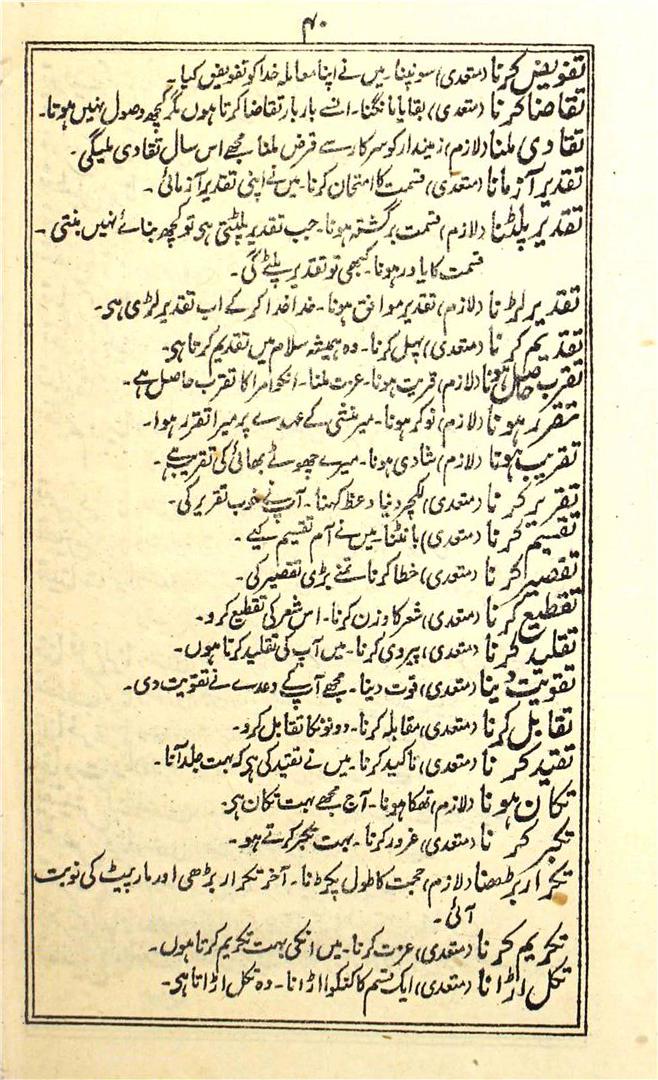 ۴۰
تفویض کرنا (متعدی) سونپنا۔ میں نے اپنا معاملہ خدا کو تفویض کیا۔
تقاضا کرنا (متعدی) بقایا مانگنا۔ انسے بار بار تقاضا کرتا ہوں مگر کچھ وصول نہیں ہوتا۔
تقاوی ملنا (لازم) زمیندار کو سرکار سے قرض ملنا۔ مجھے اس سال تقاوی ملیگی۔
تقدیر آزمانا (متعدی) قسمت کا امتحان کرنا۔ میں نے اپنی تقدیر آزمائی۔
تقدیر پلٹنا (لازم) قسمت برگشتہ ہونا۔ جب تقدیر پلٹتی ہی تو کچھ بنائے نہیں بنتی۔
قسمت کا یاور ہونا۔ کبھی تو تقدیر پلٹے گی۔
تقدیر لڑنا (لازم) تقدیر موافق ہونا۔ خدا خدا کر کے اب تقدیر لڑی ہی۔
تقدیم کرنا (متعدی) پہل کرنا۔ وہ ہمیشہ سلام میں تقدیم کرتا ہی۔
تقرب حاصل ہونا (لازم) قربت ہونا۔ عزت ملنا۔ انکو امرا کا تقرب حاصل ہے۔
تقرر ہونا (لازم) نوکر ہونا۔ میر منشی کے عہدے پر میرا تقرر ہوا۔
تقریب ہونا (لازم) شادی ہونا۔ میرے چھوٹے بھائی کی تقریب ہے۔
تقریر کرنا (متعدی) لکچر دینا وعظ کہنا۔ آپ نے خوب تقریر کی۔
تقسیم کرنا (متعدی) بانٹنا۔ میں نے آم تقسیم کیے۔
تقصیر کرنا (متعدی) خطا کرنا۔ تمنے بڑی تقصیر کی۔
تقطیع کرنا (متعدی) شعر کا وزن کرنا۔ اس شعر کی تقطیع کرو۔
تقلید کرنا (متعدی) پیروی کرنا۔ میں آپ کی تقلید کرتا ہوں۔
تقویت دینا (متعدی) قوت دینا۔ مجھے آپ کے وعدے نے تقویت دی۔
تقابل کرنا (متعدی) مقابلہ کرنا۔ دونونکا تقابل کرو۔
تقید کرنا (متعدی) تاکید کرنا۔ میں نے تقید کی ہی کہ بہت جلد آنا۔
تکان ہونا (لازم) تھکا ہونا۔ آج مجھے بہت تکان ہی۔
تکبر کرنا (متعدی) غرور کرنا۔ بہت تکبر کرتے ہو۔
تکرار بڑھنا (لازم) حجت کا طول پکڑنا۔ آخر تکرار بڑھی اور مار پیٹ کی نوبت
آئی۔
تکریم کرنا (متعدی) عزت کرنا۔ میں انکی بہت تکریم کرتا ہوں۔
تکل اڑانا (متعدی) ایک قسم کا کنکوا اڑانا۔ وہ تکل اڑاتا ہی۔